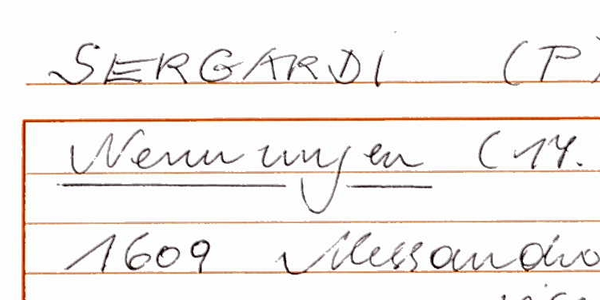 SERGARDI (P)
Nennungen (17.
1609 Alessandro